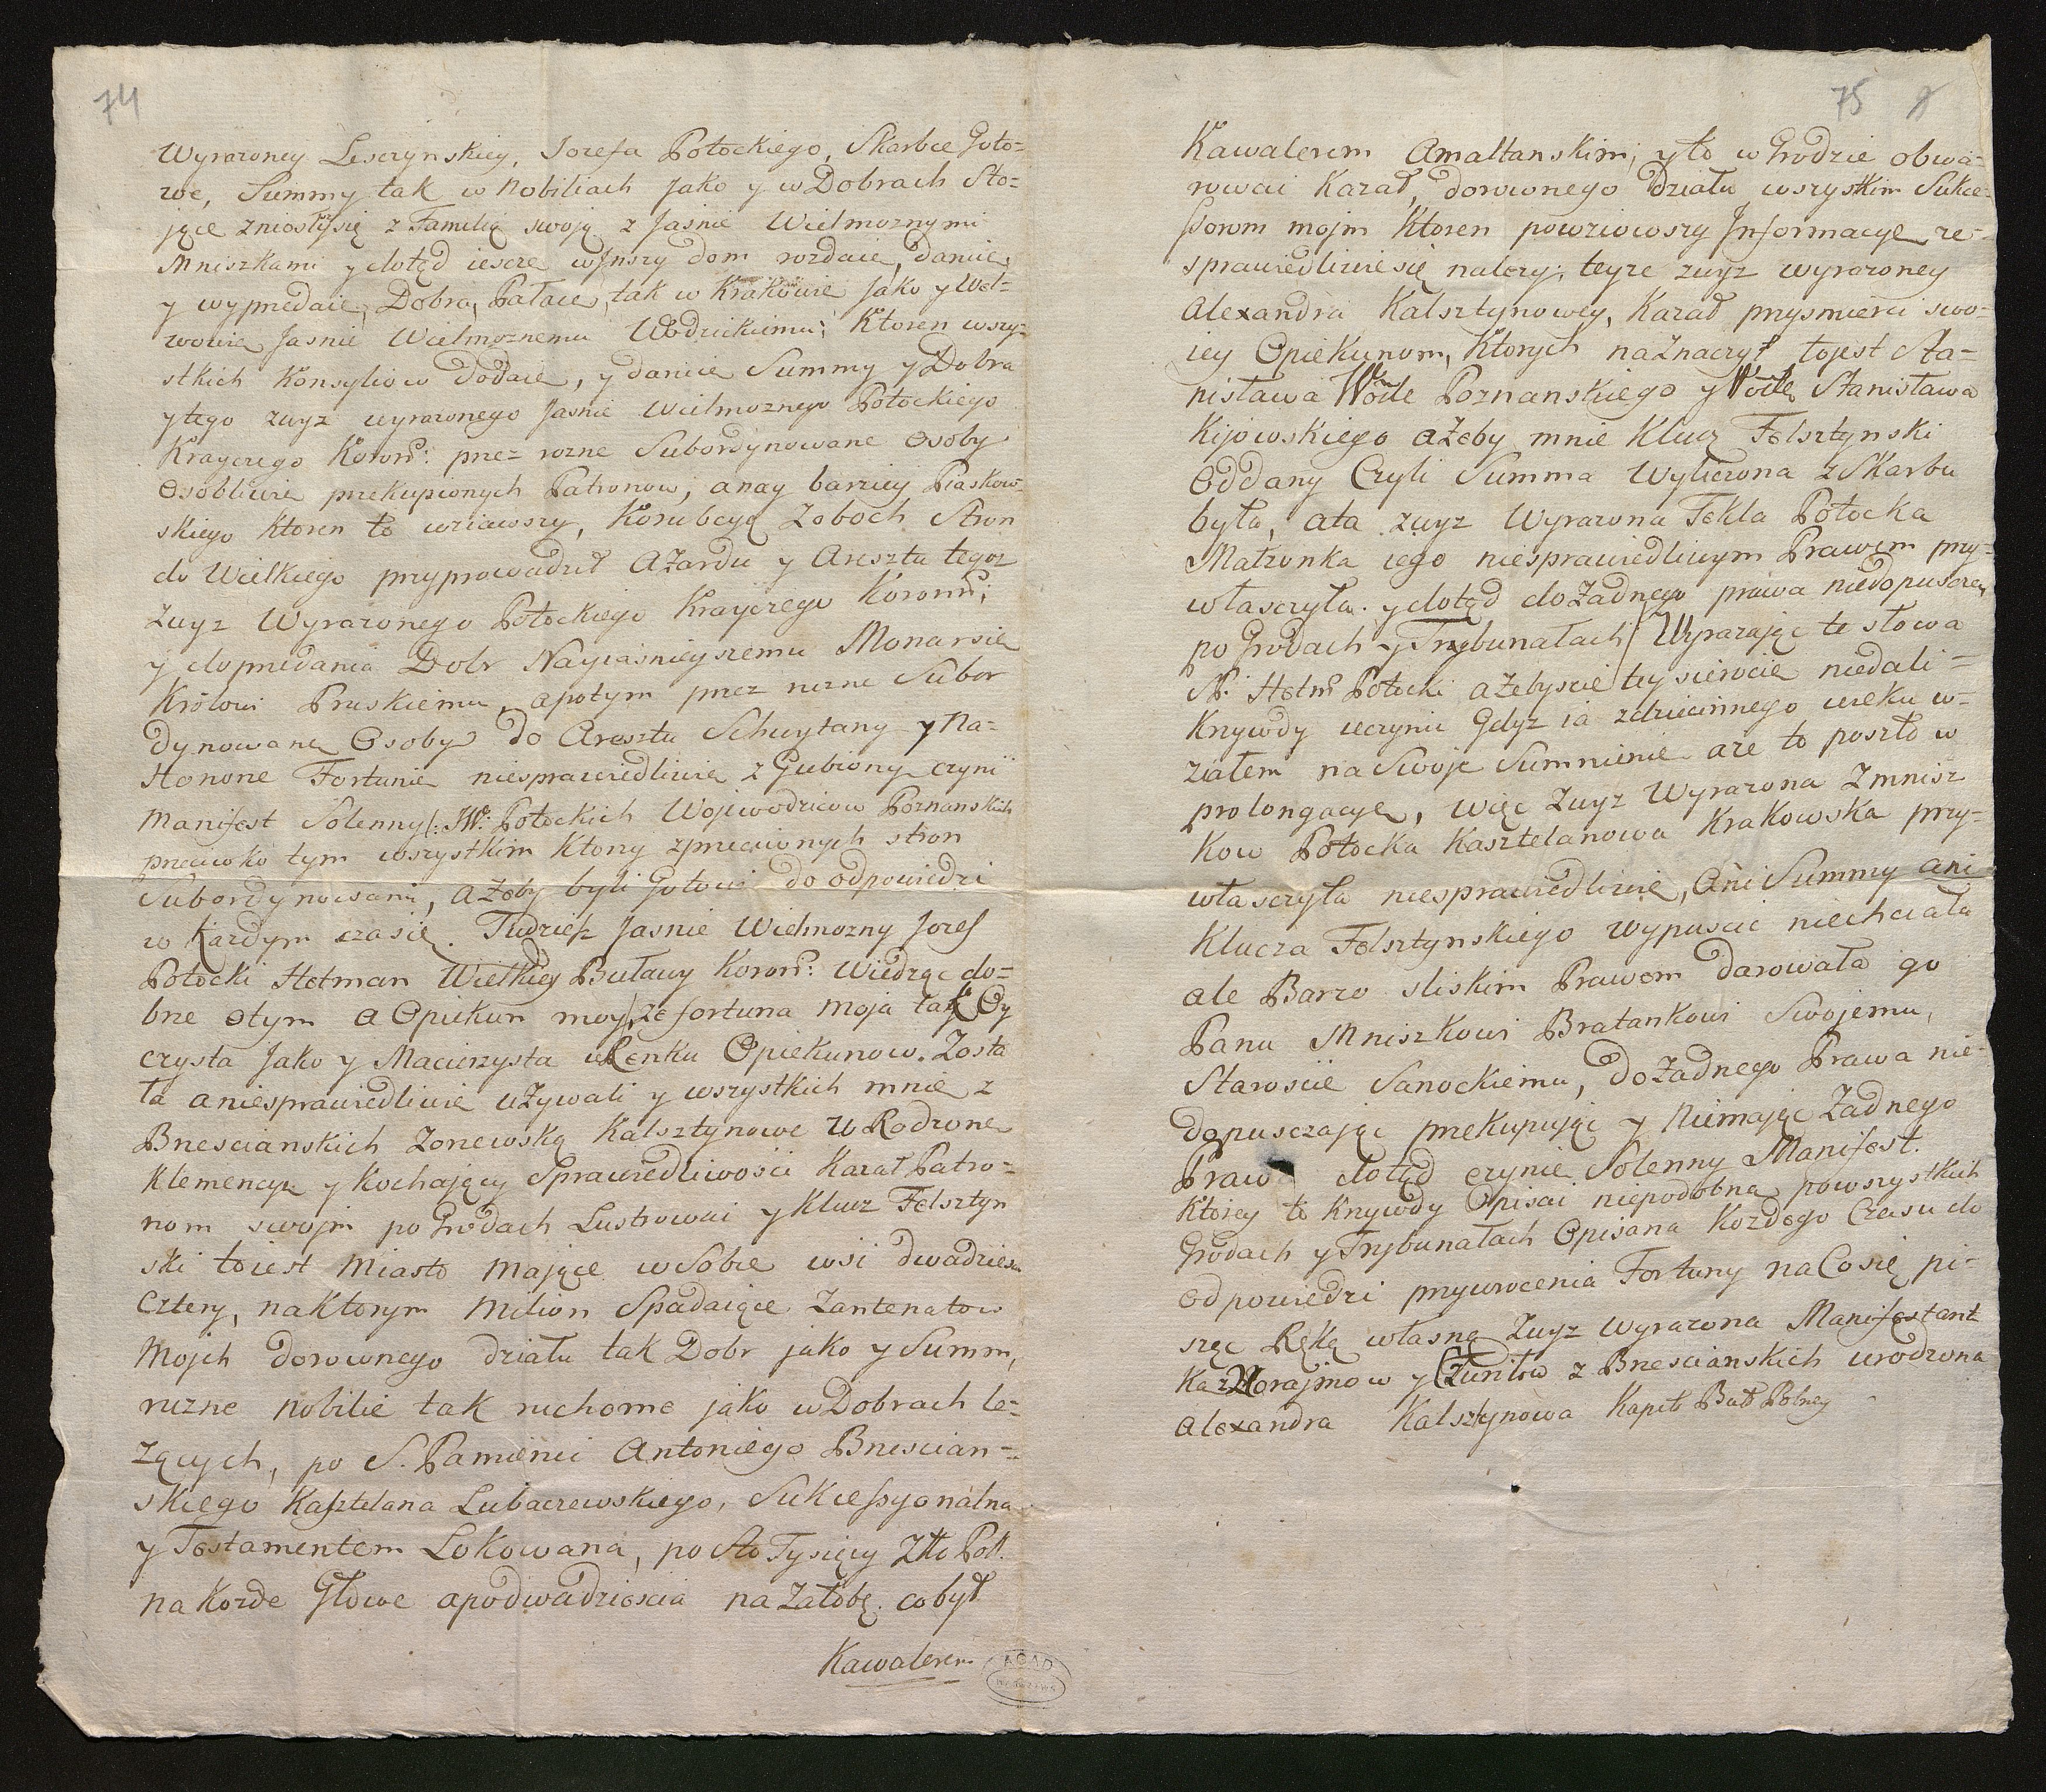 74
Wyrazoney Lesczynskiey, Jozefa Potockiego, Skarbce Goto=
we, Summy tak w Nobiliach jako y w Dobrach Sto=
jące zniosłszysię z Familią swoją z Jaśnie Wielmoznymi
Mniszkami y dotąd iescze wJnszy dom rozdaie, danie,
y wyprzedaie, Dobra, Pałace, tak w Krakowie jako y
Jasnie Wielmoznemu Wodzickiemu; Ktoren wszy=
stkich Konsyliow dodaie, y danie Summy y Dobra
ytego zwyz wyrazonego Jasnie Wielmoznego Potockiego
Krayczego Koron: przez rozne Subordynowane Osoby
Osobliwie przekupionych Patronow, anay barziey Piaskow=
skiego Ktoren to wziawszy, Korubcyą Zoboch Stron
do Wielkiego przyprowadził Azardu y Aresztu tegoz
Zwyz Wyrazonego Potockiego Krayczego Koronn;
y doprzedania Dobr Nayiaśnieyszemu Monarsie
Królowi Pruskiemu, apotym przez rozne Subor
dynowane Osoby do Aresztu Schwytany y Na=
Honorze Fortunie niesprawiedliwie zGubiony czyni
Manifest Solenny/: JW: Potockich Wojewodzicow Poznanskich
przeciwko tym wszystkim Ktorzy zprzeciwnych stron
Subordynowani, ażeby byli Gotowi do odpowiedzi
w Kazdym czasie. Tudziesz Jasnie Wielmozny Jozef
Potocki Hetman Wielkiey Buławy Koron: Wiedząc do=
brze otym a Opiekun moy, ze fortuna moja tak Oy
czysta jako y Macierzysta wRenku Opiekunow. Zosta
ła aniesprawiedliwie uzywali y wszystkich mnie z
Brzescianskich Zoniewską Kalsztynowe
Klemencyą y Kochający Sprawiedliwości Kazał Patro=
nom swojm po Grodach Lustrowai y Klucz Felsztyn
ski toiest Miasto mające wSobie wsi dwadziescia
Cztery, naKtorym Milion Spadaiące Zantenatow
Mojch dorownego działu tak Dobr jako y Summ,
rozne Nobilie tak ruchome jako wDobrach le=
zących, po S. Pamienci Antoniego Brzescian=
skiego Kasztelana Lubaczewskiego, Sukcessyonalna
y Testamentem Lokowana, po sto Tysięcy Zło Pol.
na Kozde Głowe apodwadziescia na Załobę. cobył
Kawalerem
75 8
Kawalerem Amaltanskim; yto w Grodzie obwa=
rowai Kazał, dorownego działu wszystkim Sukce=
ssorom mojm Ktoren powziowszy Jnformacye ze=
sprawiedliwiesię nalezy; teyze zwyz wyrazoney
Alexandra Kalsztynowey, Kazał przysmierci swo=
iey Opiekunom, Ktorych naznaczył tojest Sta=
nisława Wode Poznanskiego y Wode Stanisława
Kijowskiego ażeby mnie Klucz Felsztynski
Oddany Czyli Summa Wyliczona zSkarbu
była, ata zwyz Wyrazona Tekla Potocka
Małzonka iego niesprawiedliwym Prawem przy=
własczyła. y dotąd doZadnego prawa niedopuscza
po Grodach y Trybunałach/ Wyrazając te słowa
Hetm Potocki azebyscie tey sierocie niedali=
Krzywdy uczynic Gdyz ia zdziecinnego wieku w=
ziałem na Swoje Sumnienie aze to poszło w
prolongacye, więc Zwyz Wyrazona zMnisz
kow Potocka Kasztelanowa Krakowska przy=
własczyła niesprawiedliwie, Ani Summy ani
Klucza Felsztynskiego wypuscic niechciała
ale Barzo sliskim Prawem darowała go
Panu Mniszkowi Bratankowi Swojemu,
Staroscie Sanockiemu, doZadnego Prawa nie=
dopusczając przekupując y Niemając Zadnego
Prawa dotąd czynie Solenny Manifest.
Ktorey to Krzywdy Opisai niepodobna powszystkich
Grodach y Trybunałach Opisana Kozdego Czasu do
odpowiedzi przywrocenia Fortuny naCosię pi=
szęc Ręką własną Zwyz Wyrazona Manifestant
Ka z Norajmow y Czuriłow z Brzescianskich urodzona
Alexandra Kalsztynowa Kapit Buł Polney
AGAD
WARSZAWA